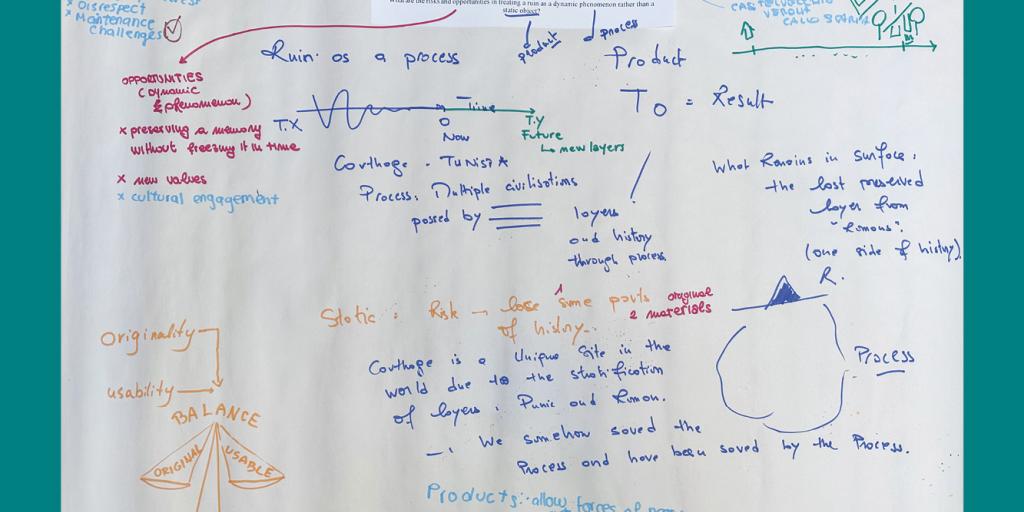 x Disrespect
x Maintenance
Challenges
what are the risks and opportunities in treating a ruin as a dynamic phenomenon rather than a
static object?
product
process
Ruin as a process
Product
OPPORTUNITIES
(dynamic
phenomenon)
x preserving a memory
without freezing it in time
x new values
x cultural engagement
T.X
Time
T.Y
O
Now
Future
↳ new layers
To = Result
Carthage - TUNISIA
Process: Multiple civilisations
passed by
layers
and history
through process
What Remains in surface:
the last preserved
layer from
"Romans".
(one side of history)
R.
Process
Static: Risk → lose some parts
of history
original
materials
Carthage is a Unique Site in the
world due to the stratification
of layers: Punic and Roman.
We somehow saved the
Process and have been saved by the Process.
Originality
usability
BALANCE
ORIGINAL
USABLE
Products: allow forces of